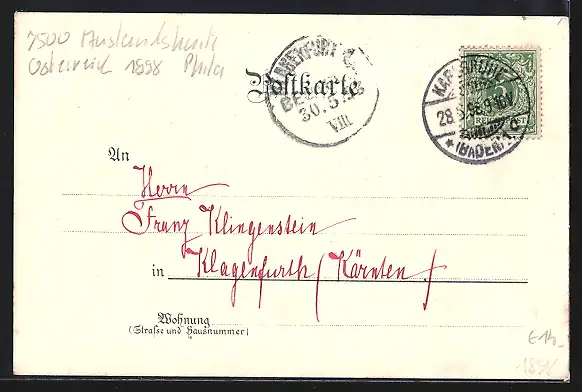 7500
Österreich 1898 Phila
Postkarte
KLAGENFURT
30.5.
VIII
KARLSRUHE
28.5.98.9-10V
* (BADEN) 1 a
5
REICHSPOST
An
Herrn
Franz Klingenstein
in Klagenfurth (Kärnten)
Wohnung
(Straße und Hausnummer)
1898